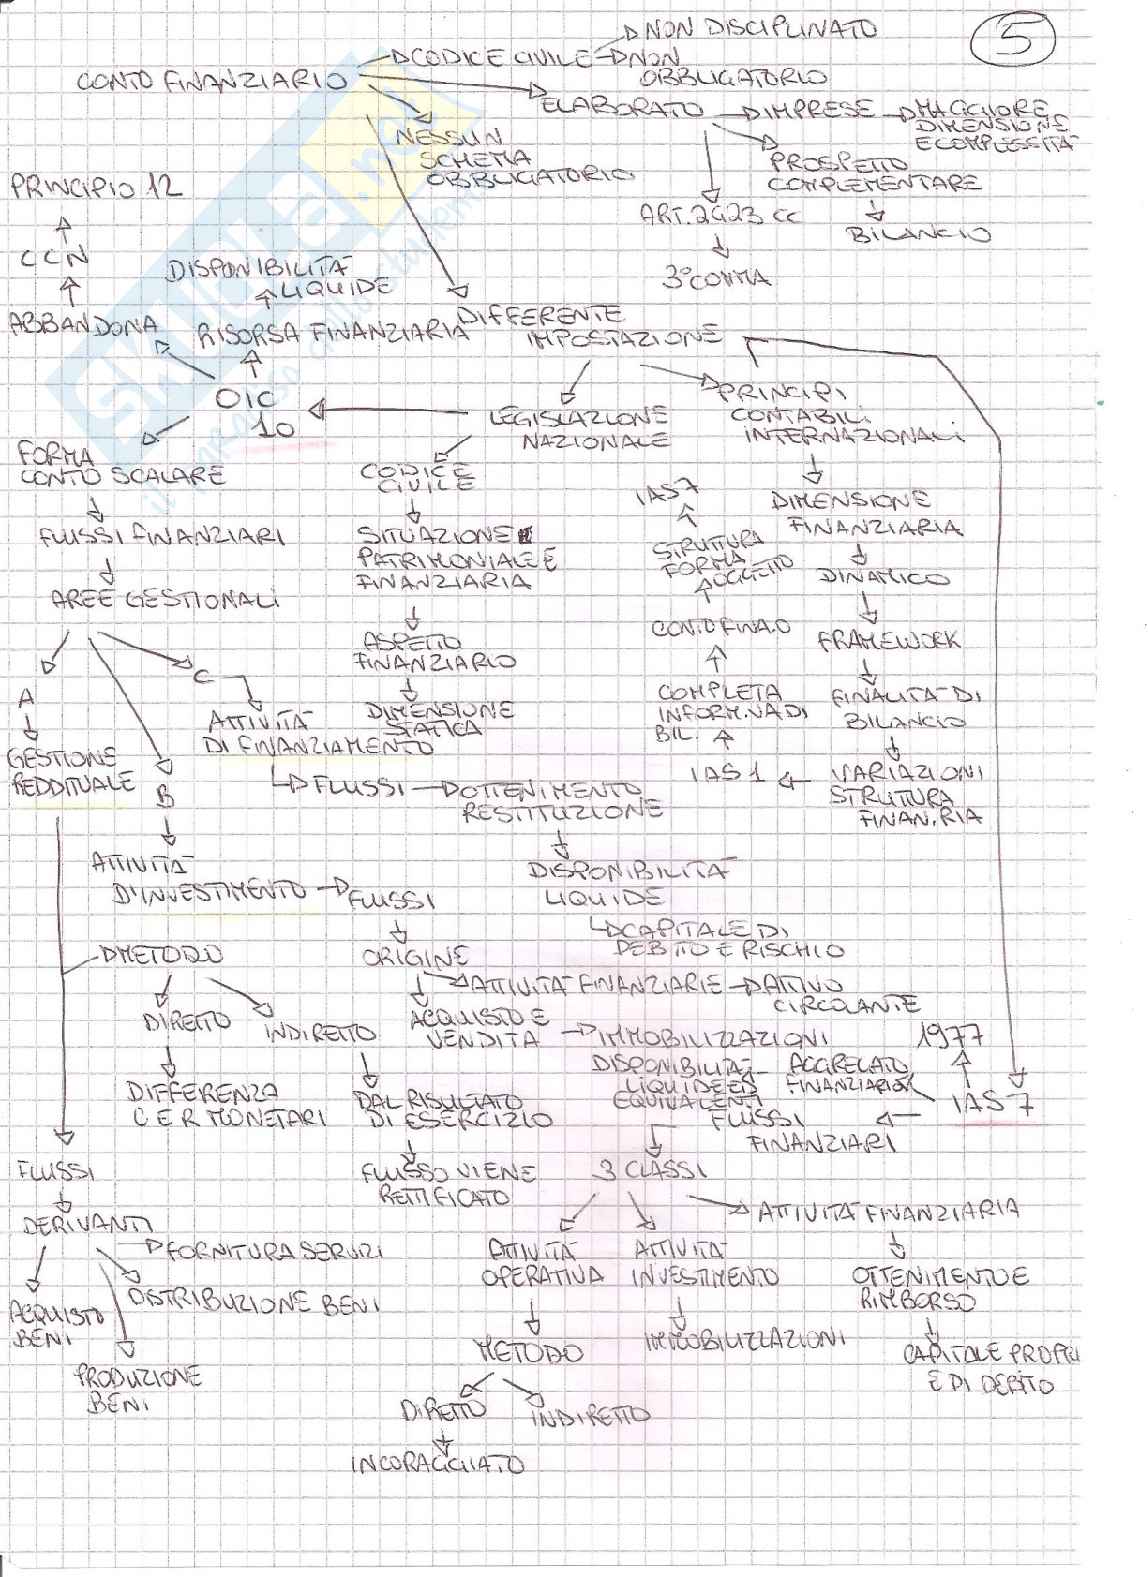 5
NON DISCIPLINATO
CODICE CIVILE
NON
OBBLIGATORIO
CONTO FINANZIARIO
ELABORATO
IMPRESE
MAGGIORE
DIMENSIONE
E COMPLESSITÀ
NESSUN
SCHEMA
OBBLIGATORIO
PROSPETTO
COMPLEMENTARE
BILANCIO
ART. 2423 CC
3° COMMA
PRINCIPIO 12
CCN
ABBANDONA
DISPONIBILITÀ
LIQUIDE
RISORSA FINANZIARIA
DIFFERENTE
IMPOSTAZIONE
OIC
10
LEGISLAZIONE
NAZIONALE
PRINCIPI
CONTABILI
INTERNAZIONALI
FORMA
CONTO SCALARE
FLUSSI FINANZIARI
AREE GESTIONALI
A
GESTIONE
REDDITUALE
B
C
ATTIVITÀ
DI FINANZIAMENTO
FLUSSI
OTTENIMENTO
RESTITUZIONE
CODICE
CIVILE
SITUAZIONE
PATRIMONIALE E
FINANZIARIA
ASPETTO
FINANZIARIO
DIMENSIONE
STATICA
IAS 7
STRUTTURA
FORMA
OGGETTO
CONTO FINA.O
COMPLETA
INFORM.VA DI
BIL.
IAS 1
DIMENSIONE
FINANZIARIA
DINAMICO
FRAMEWORK
FINALITÀ DI
BILANCIO
VARIAZIONI
STRUTTURA
FINAN.RIA
DISPONIBILITÀ
LIQUIDE
CAPITALE DI
DEBITO E RISCHIO
ATTIVITÀ
D'INVESTIMENTO
FLUSSI
ORIGINE
ATTIVITÀ FINANZIARIE
ATTIVO
CIRCOLANTE
ACQUISTO E
VENDITA
IMMOBILIZZAZIONI
METODO
DIRETTO
INDIRETTO
DIFFERENZA
C E R MONETARI
DAL RISULTATO
DI ESERCIZIO
FLUSSO VIENE
RETTIFICATO
1977
IAS 7
AGGREGATO
FINANZIARIO
DISPONIBILITÀ
LIQUIDE ED
EQUIVALENTI
FLUSSI
FINANZIARI
3 CLASSI
ATTIVITÀ
OPERATIVA
ATTIVITÀ
INVESTIMENTO
ATTIVITÀ FINANZIARIA
OTTENIMENTO E
RIMBORSO
CAPITALE PROPRI
E DI DEBITO
IMMOBILIZZAZIONI
METODO
DIRETTO
INDIRETTO
INCORAGGIATO
FLUSSI
DERIVANTI
FORNITURA SERVIZI
DISTRIBUZIONE BENI
ACQUISTO
BENI
PRODUZIONE
BENI